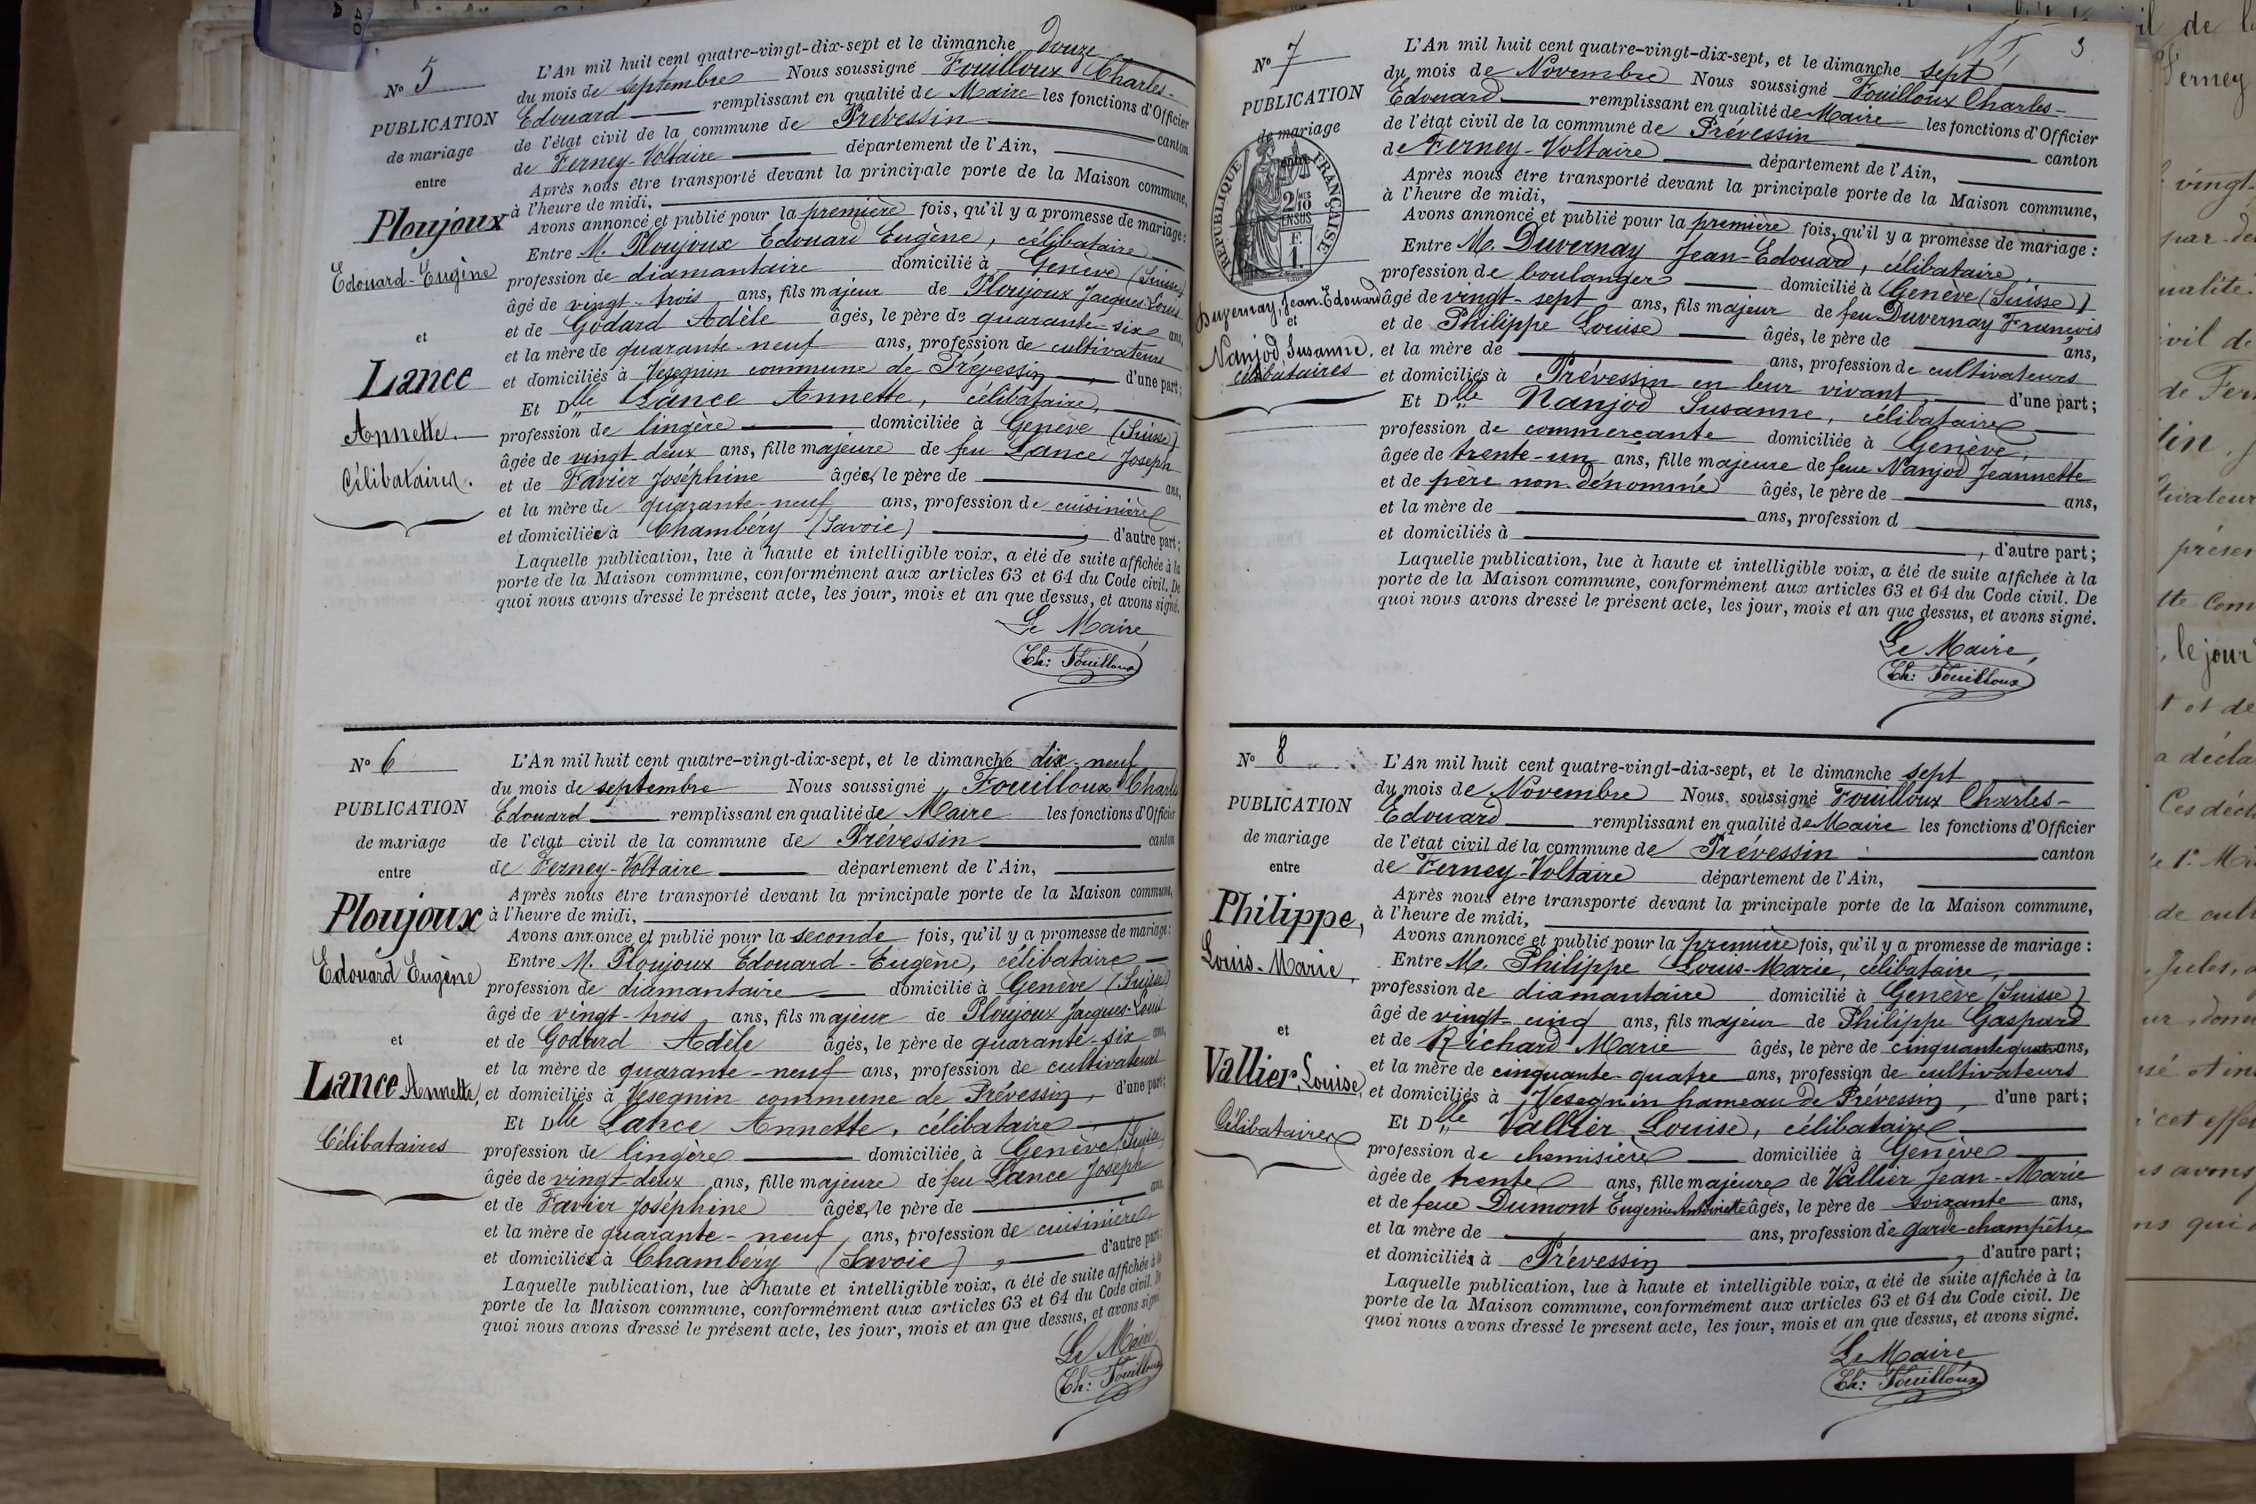 40
A
N° 5
PUBLICATION
de mariage
entre
Ploujoux
Edouard-Eugène
et
Lance
Annette.
Célibataires.
L'An mil huit cent quatre-vingt-dix-sept et le dimanche douze
du mois de septembre Nous soussigné Fouilloux Charles-
Edouard remplissant en qualité de Maire les fonctions d'Officier
de l'état civil de la commune de Prévessin canton
de Ferney-Voltaire département de l'Ain,
Après nous être transporté devant la principale porte de la Maison commune,
à l'heure de midi,
Avons annoncé et publié pour la première fois, qu'il y a promesse de mariage :
Entre M. Ploujoux Edouard Eugène, célibataire
profession de diamantaire domicilié à Genève (Suisse)
âgé de vingt-trois ans, fils majeur de Ploujoux Jacques-Louis
et de Godard Adèle âgés, le père de quarante-six ans,
et la mère de quarante-neuf ans, profession de cultivateurs
et domiciliés à Vesegnin commune de Prévessin, d'une part ;
Et Dlle Lance Annette, célibataire,
profession de lingère domiciliée à Genève (Suisse)
âgée de vingt deux ans, fille majeure de feu Lance Joseph
et de Favier Joséphine âgés, le père de ans,
et la mère de quarante-neuf ans, profession de cuisinière
et domiciliée à Chambéry (Savoie), d'autre part ;
Laquelle publication, lue à haute et intelligible voix, a été de suite affichée à la
porte de la Maison commune, conformément aux articles 63 et 64 du Code civil. De
quoi nous avons dressé le présent acte, les jour, mois et an que dessus, et avons signé.
Le Maire,
Ch: Fouilloux
N° 6
PUBLICATION
de mariage
entre
Ploujoux
Edouard Eugène
et
Lance Annette,
Célibataires
L'An mil huit cent quatre-vingt-dix-sept, et le dimanche dix-neuf
du mois de septembre Nous soussigné Fouilloux Charles
Edouard remplissant en qualité de Maire les fonctions d'Officier
de l'état civil de la commune de Prévessin canton
de Ferney-Voltaire département de l'Ain,
Après nous être transporté devant la principale porte de la Maison commune,
à l'heure de midi,
Avons annoncé et publié pour la seconde fois, qu'il y a promesse de mariage :
Entre M. Ploujoux Edouard-Eugène, célibataire
profession de diamantaire domicilié à Genève (Suisse)
âgé de vingt-trois ans, fils majeur de Ploujoux Jacques-Louis
et de Godard Adèle âgés, le père de quarante-six ans,
et la mère de quarante-neuf ans, profession de cultivateurs
et domiciliés à Vesegnin commune de Prévessin, d'une part ;
Et Dlle Lance Annette, célibataire,
profession de lingère domiciliée à Genève (Suisse)
âgée de vingt-deux ans, fille majeure de feu Lance Joseph
et de Favier Joséphine âgés, le père de ans,
et la mère de quarante-neuf ans, profession de cuisinière
et domiciliée à Chambéry (Savoie), d'autre part ;
Laquelle publication, lue à haute et intelligible voix, a été de suite affichée à la
porte de la Maison commune, conformément aux articles 63 et 64 du Code civil. De
quoi nous avons dressé le présent acte, les jour, mois et an que dessus, et avons signé
Le Maire
Ch: Fouilloux
3
N° 7
PUBLICATION
de mariage
entre
RÉPUBLIQUE FRANÇAISE
2/10 EN SUS
F.
1.
Duvernay, Jean-Edouard
et
Nanjod, Susanne,
célibataires
L'An mil huit cent quatre-vingt-dix-sept, et le dimanche sept
du mois de Novembre Nous soussigné Fouilloux Charles-
Edouard remplissant en qualité de Maire les fonctions d'Officier
de l'état civil de la commune de Prévessin canton
de Ferney-Voltaire département de l'Ain,
Après nous être transporté devant la principale porte de la Maison commune,
à l'heure de midi,
Avons annoncé et publié pour la première fois, qu'il y a promesse de mariage :
Entre M. Duvernay Jean-Edouard, célibataire,
profession de boulanger domicilié à Genève (Suisse)
âgé de vingt-sept ans, fils majeur de feu Duvernay François
et de Philippe Louise âgés, le père de ans,
et la mère de ans, profession de cultivateurs
et domiciliés à Prévessin en leur vivant, d'une part ;
Et Dlle Nanjod Susanne, célibataire
profession de commerçante domiciliée à Genève,
âgée de trente-un ans, fille majeure de feue Nanjod Jeannette
et de père non dénommé âgés, le père de ans,
et la mère de ans, profession d
et domiciliés à , d'autre part ;
Laquelle publication, lue à haute et intelligible voix, a été de suite affichée à la
porte de la Maison commune, conformément aux articles 63 et 64 du Code civil. De
quoi nous avons dressé le présent acte, les jour, mois et an que dessus, et avons signé.
Le Maire,
Ch: Fouilloux
N° 8
PUBLICATION
de mariage
entre
Philippe,
Louis-Marie,
et
Vallier, Louise,
Célibataires
L'An mil huit cent quatre-vingt-dix-sept, et le dimanche sept
du mois de Novembre Nous soussigné Fouilloux Charles-
Edouard remplissant en qualité de Maire les fonctions d'Officier
de l'état civil de la commune de Prévessin canton
de Ferney-Voltaire département de l'Ain,
Après nous être transporté devant la principale porte de la Maison commune,
à l'heure de midi,
Avons annoncé et publié pour la première fois, qu'il y a promesse de mariage :
Entre M. Philippe Louis-Marie, célibataire,
profession de diamantaire domicilié à Genève (Suisse)
âgé de vingt-cinq ans, fils majeur de Philippe Gaspard
et de Richard Marie âgés, le père de cinquante quatre ans,
et la mère de cinquante-quatre ans, profession de cultivateurs
et domiciliés à Vesegnin hameau de Prévessin, d'une part ;
Et Dlle Vallier Louise, célibataire
profession de chemisière domiciliée à Genève
âgée de trente ans, fille majeure de Vallier Jean-Marie
et de feue Dumont Eugenie Antoinette âgés, le père de soixante ans,
et la mère de ans, profession de garde-champêtre
et domiciliés à Prévessin, d'autre part ;
Laquelle publication, lue à haute et intelligible voix, a été de suite affichée à la
porte de la Maison commune, conformément aux articles 63 et 64 du Code civil. De
quoi nous avons dressé le présent acte, les jour, mois et an que dessus, et avons signé.
Le Maire,
Ch: Fouilloux
il de l
Ferney
vingt-
par de
qualité
ivil de
de Fer
présen
, le jour
t et de
a décla
de cult
cet effet
s avons
ns qui